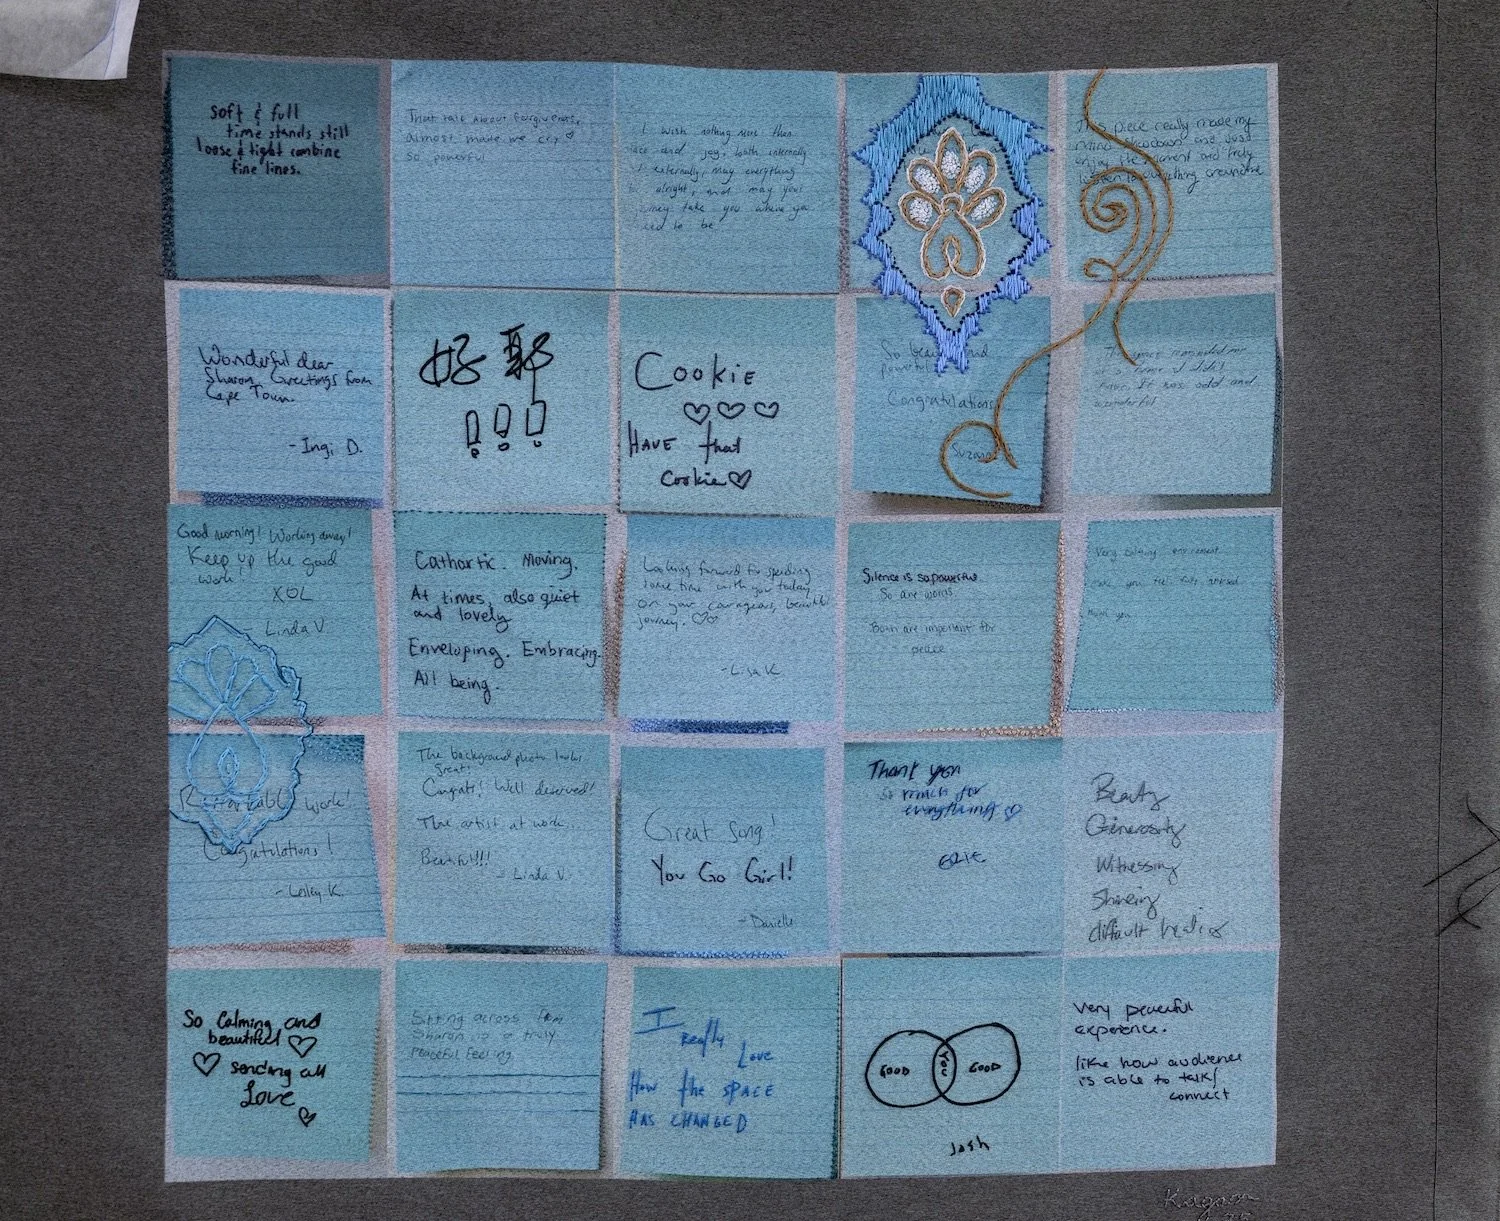 soft & full
time stands still
loose & tight combine
fine lines.
That talk about forgiveness,
almost made me cry
so powerful
I wish nothing more than
and joy, both internally
externally, may everything
alright, and may your
take you where you
need to be
This piece really made my
mind slowdown and just
enjoy the moment and truly
listen to everything around me
Wonderful dear
Sharon, Greetings from
Cape Town.
- Ingi D.
好耶
!!!
Cookie
Have that
cookie
So beautiful and
powerful
Congratulations
Suzan
It was odd and
wonderful
Good morning! Working away!
Keep up the good
work!
XOL
- Linda V.
Cathartic. Moving.
At times, also quiet
and lovely
Enveloping. Embracing.
All being.
Looking forward to spending
some time with you today
on your courageous, beautiful
journey.
- Lisa K.
Silence is so powerful.
So are words.
Both are important for
peace
Very calming environment
make you feel
thank you
Remarkable work!
Congratulations!
- Lesley K.
The background photo looks
great!
Congrats! Well deserved!
The artist at work...
Beautiful!!!!
- Linda V.
Great Song!
You Go Girl!
- Danielle
Thank you
so much for
everything
Beauty
Generosity
Witnessing
Shining
difficult healing
So calming and
beautiful
sending all
Love
Sitting across from
Sharon is a truly
peaceful feeling.
I
really love
How the space
has changed
GOOD YOU GOOD
Josh
Very peaceful
experience.
like how audience
is able to talk/
connect
Kagan